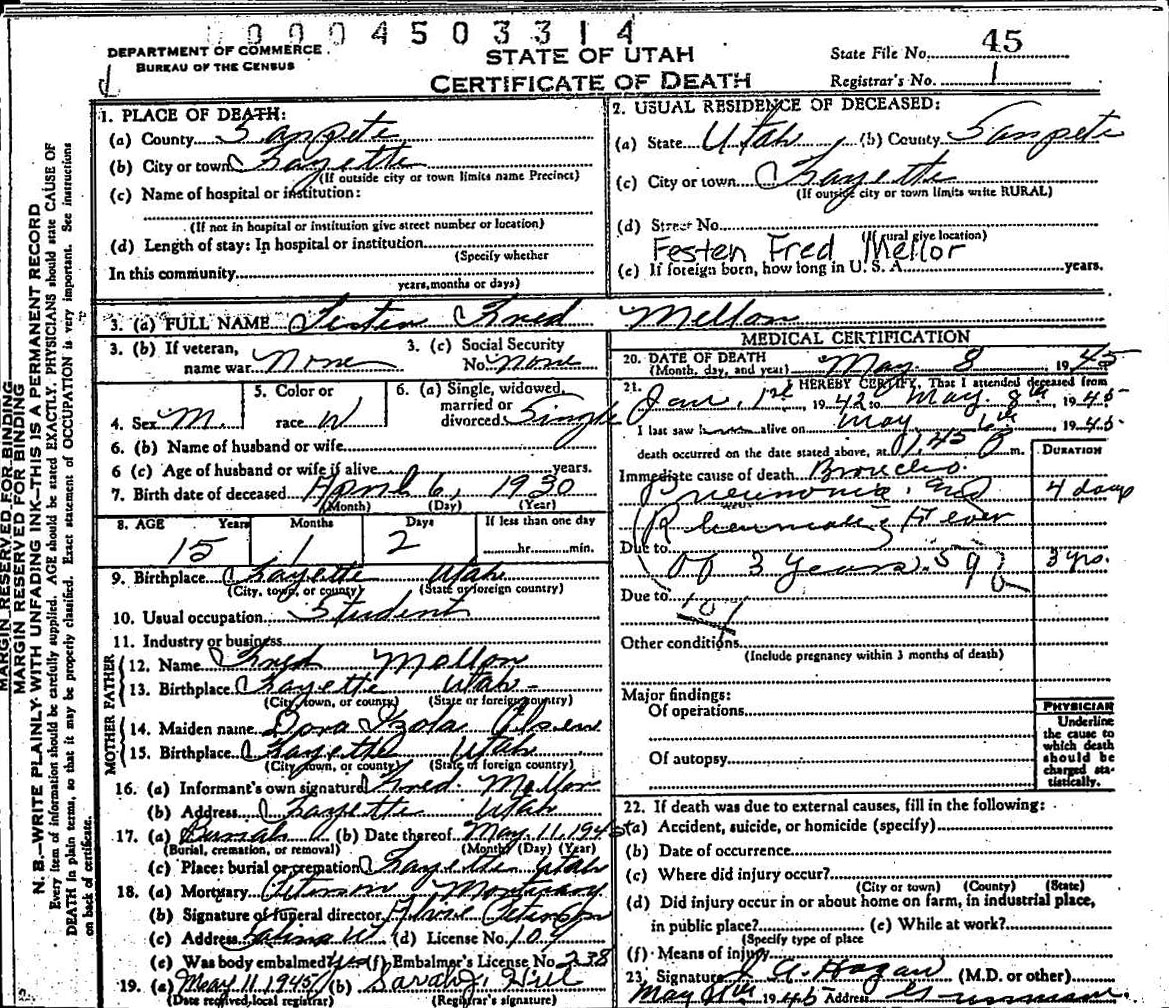 0004503314
DEPARTMENT OF COMMERCE
BUREAU OF THE CENSUS
STATE OF UTAH
CERTIFICATE OF DEATH
State File No. 45
Registrar's No. 1
MARGIN RESERVED FOR BINDING
MARGIN RESERVED FOR BINDING
N. B.—WRITE PLAINLY WITH UNFADING INK—THIS IS A PERMANENT RECORD
Every item of information should be carefully supplied. AGE should be stated EXACTLY. PHYSICIANS should state CAUSE OF
DEATH in plain terms, so that it may be properly classified. Exact statement of OCCUPATION is very important. See instructions
on back of certificate.
1. PLACE OF DEATH:
(a) County Sanpete
(b) City or town Fayette
(If outside city or town limits name Precinct)
(c) Name of hospital or institution:
(If not in hospital or institution give street number or location)
(d) Length of stay: In hospital or institution
(Specify whether
In this community
years, months or days)
2. USUAL RESIDENCE OF DECEASED:
(a) State Utah (b) County Sanpete
(c) City or town Fayette
(If outside city or town limits write RURAL)
(d) Street No.
(If rural give location)
Festen Fred Mellor
(e) If foreign born, how long in U. S. A. years.
3. (a) FULL NAME Festen Fred Mellor
3. (b) If veteran, name war None
3. (c) Social Security No. None
4. Sex M.
5. Color or race W
6. (a) Single, widowed, married or divorced Single
6. (b) Name of husband or wife
6 (c) Age of husband or wife if alive years.
7. Birth date of deceased April 6, 1930
(Month) (Day) (Year)
8. AGE Years Months Days If less than one day
15 1 2 hr. min.
9. Birthplace Fayette Utah
(City, town, or county) (State or foreign country)
10. Usual occupation Student
11. Industry or business
FATHER
12. Name Fred Mellor
13. Birthplace Fayette Utah
(City, town, or county) (State or foreign country)
MOTHER
14. Maiden name Dora Izola Olsen
15. Birthplace Fayette Utah
(City, town, or county) (State or foreign country)
16. (a) Informant's own signature Fred Mellor
(b) Address Fayette Utah
17. (a) Burial (b) Date thereof May. 11, 1945
(Burial, cremation, or removal) (Month) (Day) (Year)
(c) Place: burial or cremation Fayette Utah
18. (a) Mortuary Peterson Mortuary
(b) Signature of funeral director
(c) Address Salina Ut (d) License No. 109
(e) Was body embalmed yes (f) Embalmer's License No. 238
19. (a) May 11 1945 (b) Sarah J. Hill
(Date received, local registrar) (Registrar's signature)
MEDICAL CERTIFICATION
20. DATE OF DEATH May 8 1945
(Month, day, and year)
21. I HEREBY CERTIFY, That I attended deceased from
Jan. 1st 1942 to May. 8th, 1945
I last saw him alive on May 6th, 1945
death occurred on the date stated above, at m.
DURATION
Immediate cause of death Broncho.
Pneumonia. and 4 days
Rheumatic Fever
Due to
of 3 years. 3 yrs.
Due to
Other conditions
(Include pregnancy within 3 months of death)
Major findings:
Of operations
Of autopsy
PHYSICIAN
Underline
the cause to
which death
should be
charged sta-
tistically.
22. If death was due to external causes, fill in the following:
(a) Accident, suicide, or homicide (specify)
(b) Date of occurrence
(c) Where did injury occur?
(City or town) (County) (State)
(d) Did injury occur in or about home on farm, in industrial place,
in public place? (e) While at work?
(Specify type of place
(f) Means of injury
23. Signature A. Hagan (M.D. or other)
May 1945 Address Gunnison